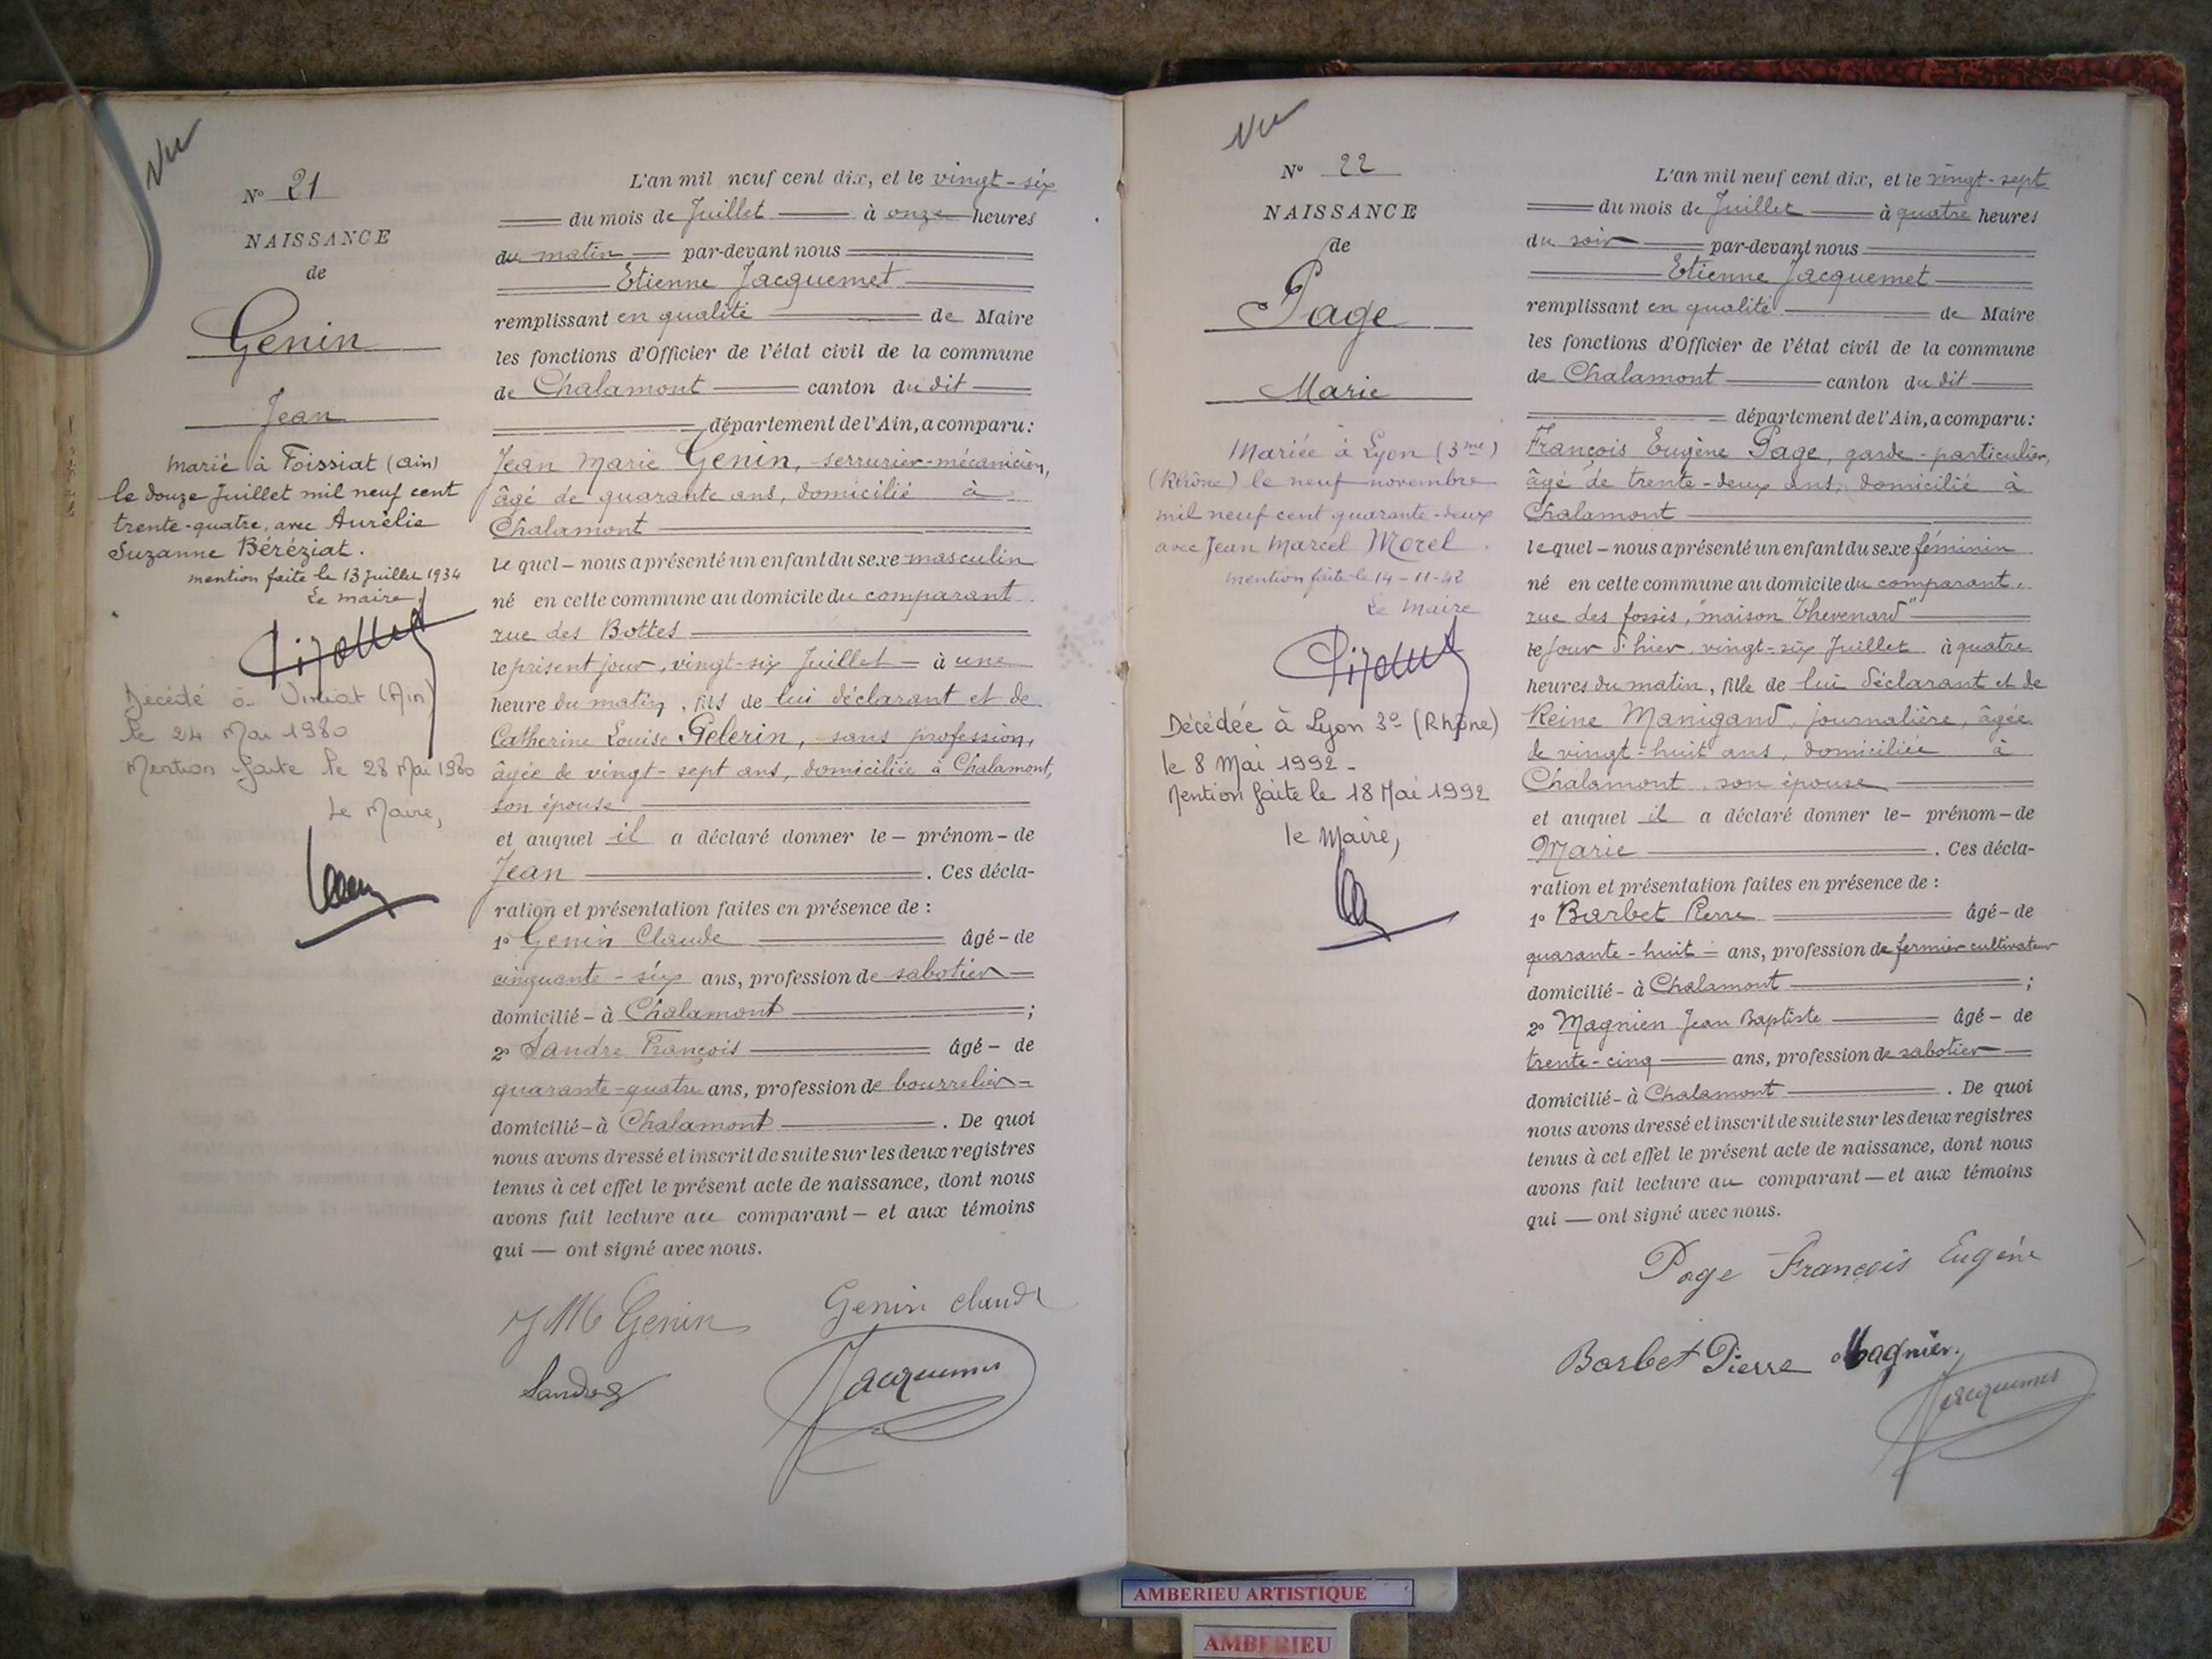 Vu
N° 21
NAISSANCE
de
Genin
Jean
marié à Foissiat (Ain)
le douze Juillet mil neuf cent
trente-quatre, avec Aurélie
Suzanne Béréziat.
mention faite le 13 Juillet 1934
Le maire
Décédé à Viriat (Ain)
le 24 Mai 1980
Mention faite le 28 Mai 1980
Le Maire,
L'an mil neuf cent dix, et le vingt-six
du mois de Juillet à onze heures
du matin par-devant nous
Etienne Jacquemet
remplissant en qualité de Maire
les fonctions d'Officier de l'état civil de la commune
de Chalamont canton du dit
département de l'Ain, a comparu:
Jean Marie Genin, serrurier-mécanicien,
âgé de quarante ans, domicilié à
Chalamont
lequel – nous a présenté un enfant du sexe masculin
né en cette commune au domicile du comparant.
rue des Bottes
le présent jour, vingt-six Juillet – à une
heure du matin, fils de lui déclarant et de
Catherine Louise Pelerin, sans profession,
âgée de vingt-sept ans, domiciliée à Chalamont,
son épouse
et auquel il a déclaré donner le – prénom – de
Jean . Ces décla-
ration et présentation faites en présence de :
1° Genin Claude âgé – de
cinquante-six ans, profession de sabotier
domicilié – à Chalamont ;
2° Sandre François âgé – de
quarante-quatre ans, profession de bourrelier
domicilié – à Chalamont . De quoi
nous avons dressé et inscrit de suite sur les deux registres
tenus à cet effet le présent acte de naissance, dont nous
avons fait lecture au comparant – et aux témoins
qui — ont signé avec nous.
J M Genin Genin claude
Sandre Jacquemet
Vu
N° 22
NAISSANCE
de
Page
Marie
Mariée à Lyon (3me)
(Rhône) le neuf novembre
mil neuf cent quarante-deux
avec Jean Marcel Morel.
mention faite le 14-11-42
Le Maire
Décédée à Lyon 3e (Rhône)
le 8 Mai 1992 -
Mention faite le 18 Mai 1992
le Maire,
L'an mil neuf cent dix, et le vingt-sept
du mois de Juillet à quatre heures
du soir par-devant nous
Etienne Jacquemet
remplissant en qualité de Maire
les fonctions d'Officier de l'état civil de la commune
de Chalamont canton du dit
département de l'Ain, a comparu:
François Eugène Page, garde-particulier,
âgé de trente-deux ans, domicilié à
Chalamont
lequel – nous a présenté un enfant du sexe féminin
né en cette commune au domicile du comparant,
rue des fossés, "maison Thevenard"
le jour d'hier, vingt-six Juillet à quatre
heures du matin, fille de lui déclarant et de
Reine Manigand, journalière, âgée
de vingt-huit ans, domiciliée à
Chalamont, son épouse
et auquel il a déclaré donner le – prénom – de
Marie . Ces décla-
ration et présentation faites en présence de :
1° Barbet Pierre âgé – de
quarante-huit ans, profession de fermier cultivateur
domicilié – à Chalamont ;
2° Magnien Jean Baptiste âgé – de
trente-cinq ans, profession de sabotier
domicilié – à Chalamont . De quoi
nous avons dressé et inscrit de suite sur les deux registres
tenus à cet effet le présent acte de naissance, dont nous
avons fait lecture au comparant — et aux témoins
qui — ont signé avec nous.
Page François Eugène
Barbet Pierre Magnien
Jacquemet
AMBERIEU ARTISTIQUE
AMBERIEU